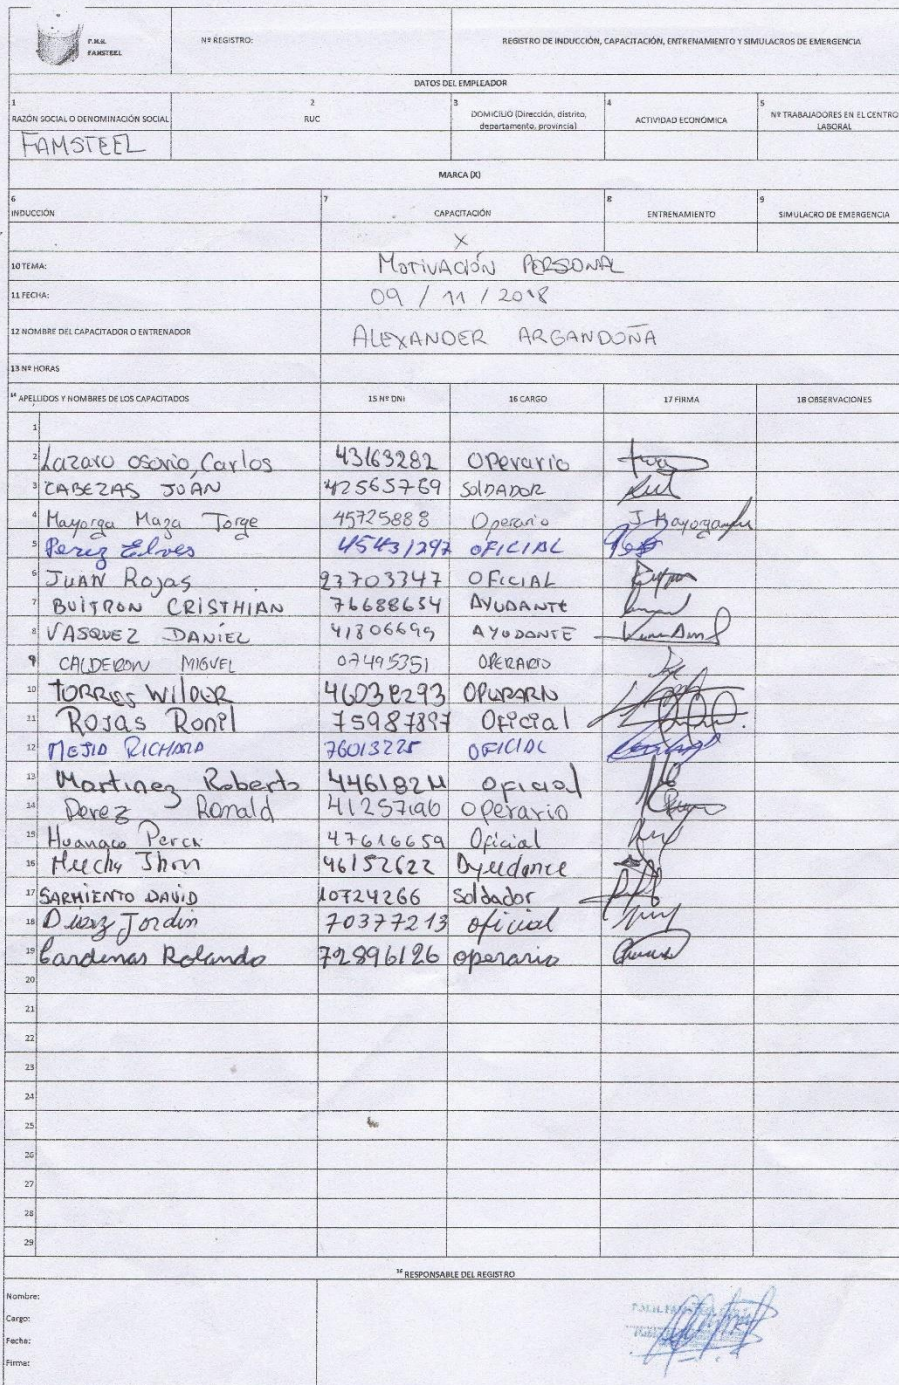 F.M.H.
FAMSTEEL
Nº REGISTRO:
REGISTRO DE INDUCCIÓN, CAPACITACIÓN, ENTRENAMIENTO Y SIMULACROS DE EMERGENCIA
DATOS DEL EMPLEADOR
1 RAZÓN SOCIAL O DENOMINACIÓN SOCIAL
2 RUC
3 DOMICILIO (Dirección, distrito, departamento, provincia)
4 ACTIVIDAD ECONÓMICA
5 Nº TRABAJADORES EN EL CENTRO LABORAL
FAMSTEEL
MARCA (X)
6 INDUCCIÓN
7 CAPACITACIÓN
8 ENTRENAMIENTO
9 SIMULACRO DE EMERGENCIA
X
10 TEMA: MOTIVACIÓN PERSONAL
11 FECHA: 09 / 11 / 2018
12 NOMBRE DEL CAPACITADOR O ENTRENADOR ALEXANDER ARGANDOÑA
13 Nº HORAS
14 APELLIDOS Y NOMBRES DE LOS CAPACITADOS 15 Nº DNI 16 CARGO 17 FIRMA 18 OBSERVACIONES
1
2 Lazaro osorio, Carlos 43163282 Operario
3 CABEZAS JOÁN 42565769 SOLDADOR
4 Mayorga Maza Jorge 45725888 Operario J Mayorga
5 Perez Elves 45431297 OFICIAL
6 JUAN Rojas 23703347 OFICIAL
7 BUITRON CRISTHIAN 76688654 AYUDANTE
8 VASQUEZ DANIEL 41806699 AYUDANTE
9 CALDERON MIGUEL 07495351 OPERARIO
10 TORRES WILDER OPERARN
11 Rojas Ronil 75987897 Oficial
12 MEJIA RICHARD 76013225 OFICIAL
13 Martinez Roberto oficial
14 Perez Ronald 41257196 operario
15 Huanaco Perci 47616659 Oficial
16 Jhon 46152622
17 SARMIENTO DAVID 10724266 soldador
18 Diaz Jordin 70377213 oficial
19 Cardenas Rolando 72896126 operario
20
21
22
23
24
25
26
27
28
29
14 RESPONSABLE DEL REGISTRO
Nombre:
Cargo:
Fecha:
Firma: